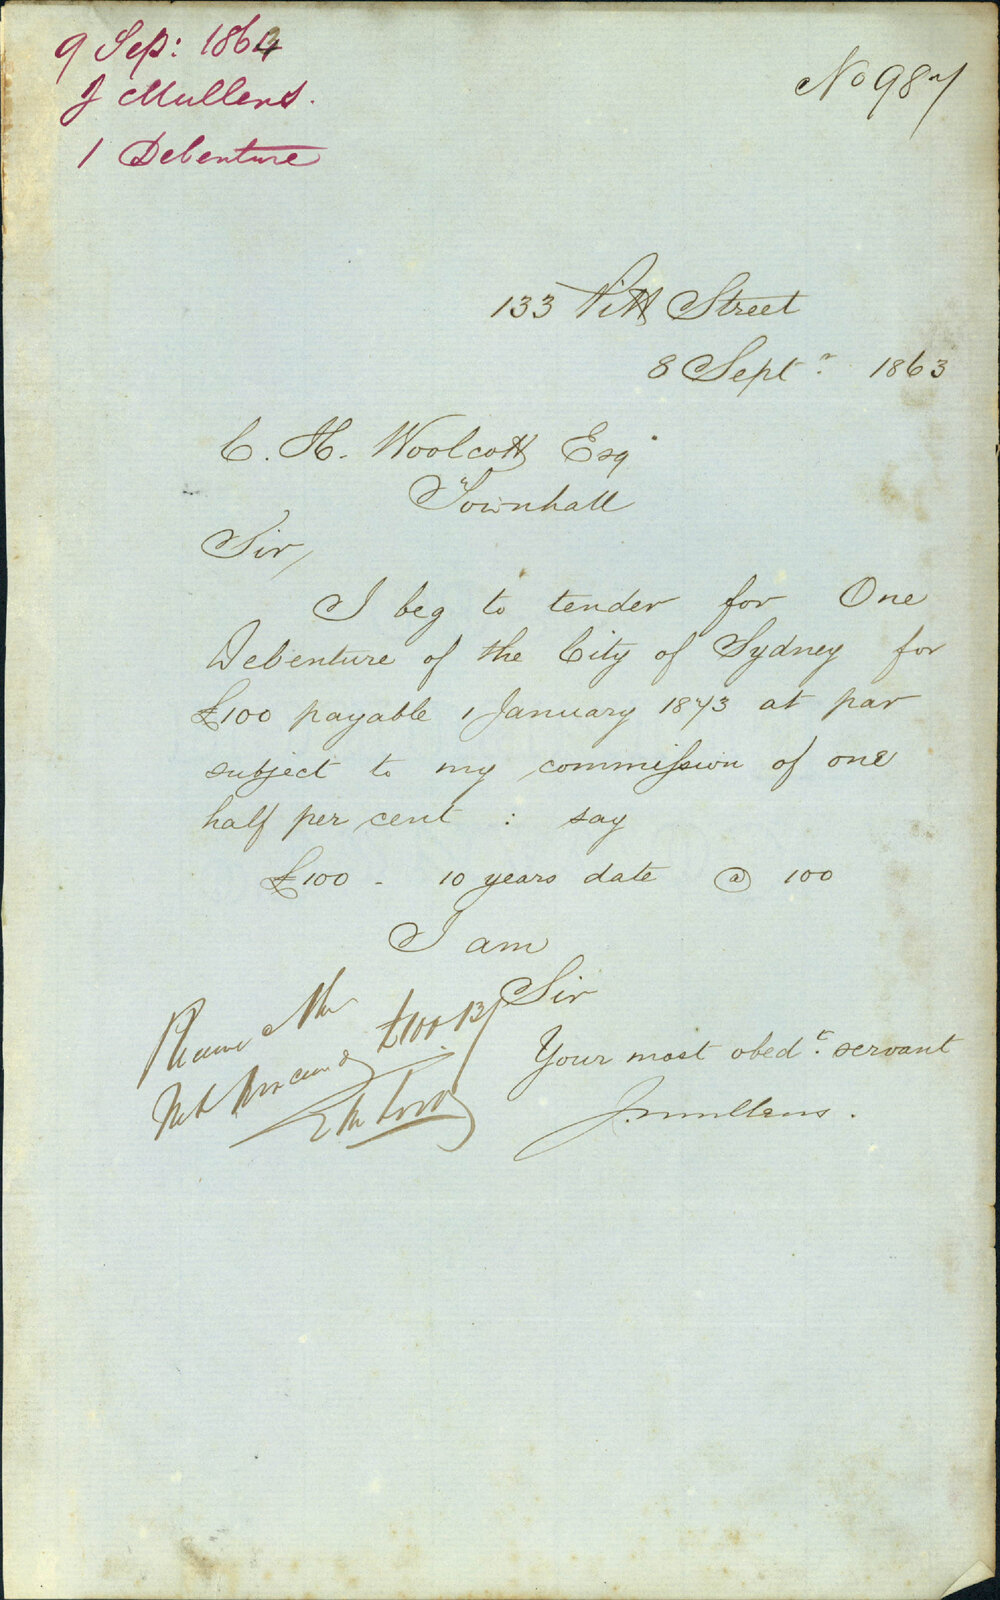 9 Sep: 1863
J Mullens.
1 Debenture
No 987
133 Pitt Street
8 Septr. 1863
C. H. Woolcott Esq
Townhall
Sir,
I beg to tender for One
Debenture of the City of Sydney for
£100 payable 1 January 1873 at par
subject to my commission of one
half per cent : say
£100 - 10 years date @ 100
I am
Sir
Your most obedt. servant
J. Mullens.
£100